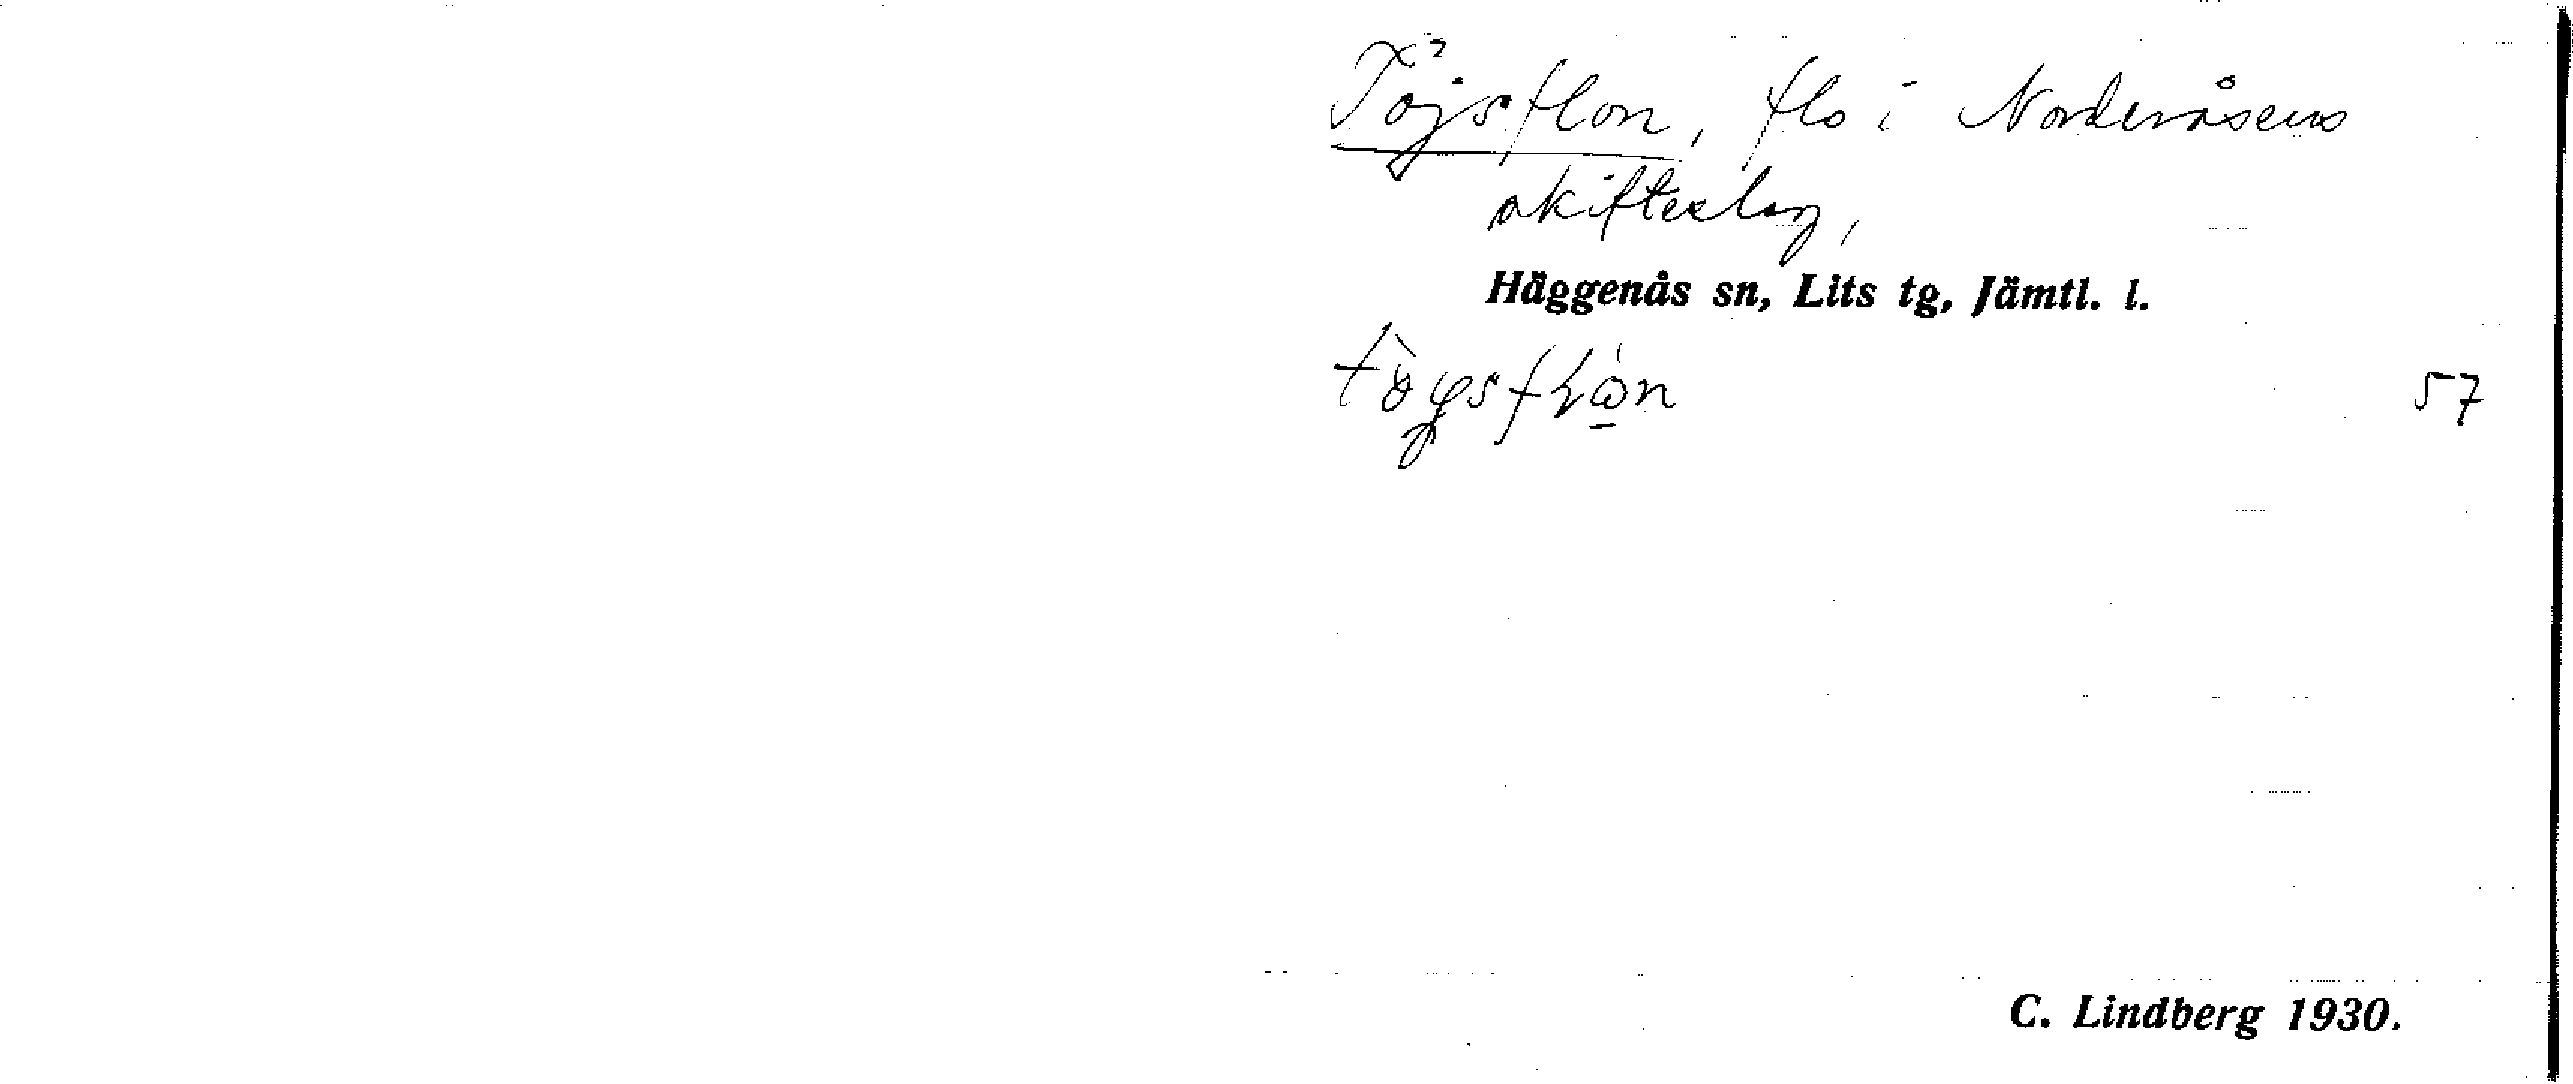 Töjsflon, flo i Norderåsens
skifteslag,
Häggenås sn, Lits tg, Jämtl. l.
57
C. Lindberg 1930.